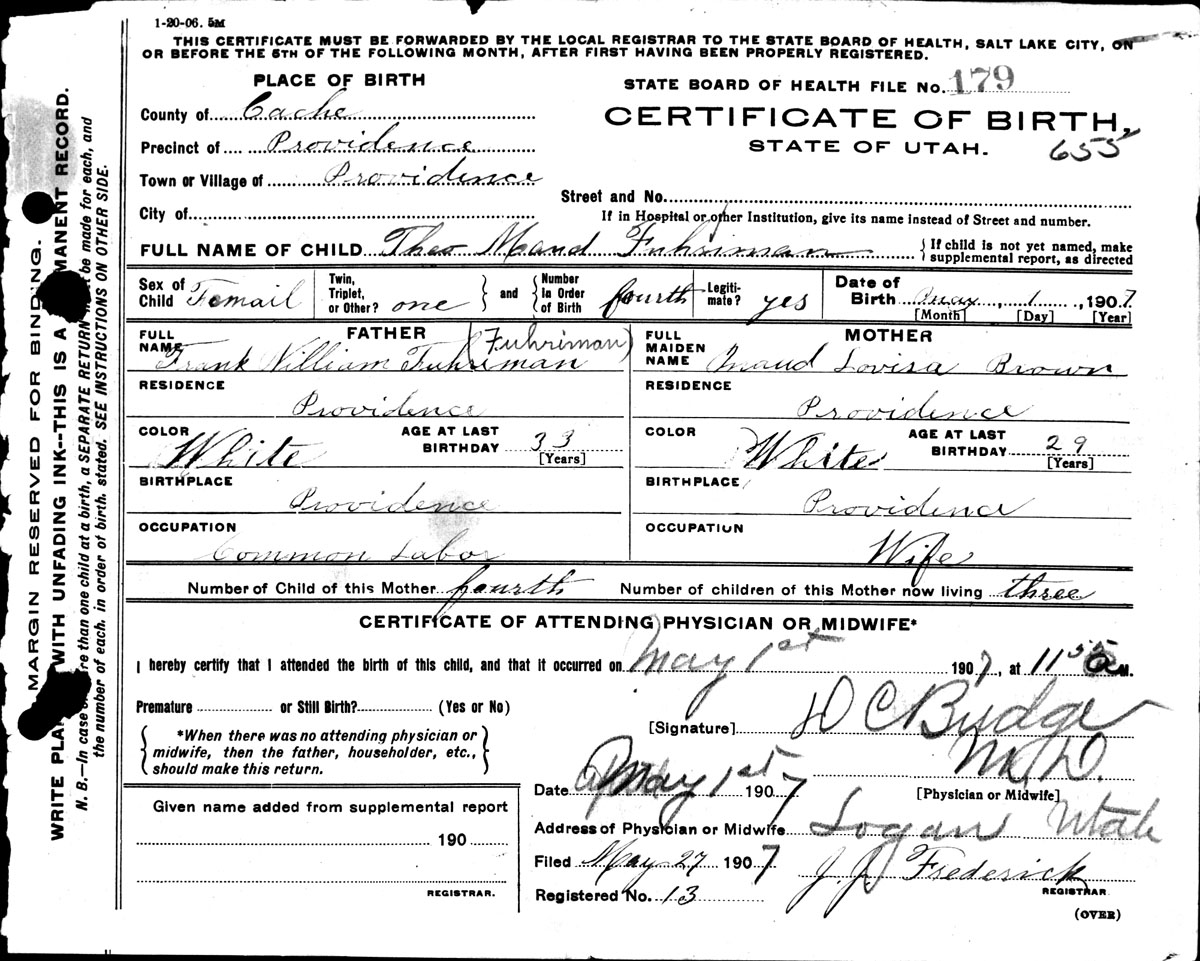 1-20-06. 5M
THIS CERTIFICATE MUST BE FORWARDED BY THE LOCAL REGISTRAR TO THE STATE BOARD OF HEALTH, SALT LAKE CITY, ON
OR BEFORE THE 5TH OF THE FOLLOWING MONTH, AFTER FIRST HAVING BEEN PROPERLY REGISTERED.
PLACE OF BIRTH
STATE BOARD OF HEALTH FILE No. 179
County of Cache
CERTIFICATE OF BIRTH,
Precinct of Providence
STATE OF UTAH. 655
Town or Village of Providence
Street and No.
City of
If in Hospital or other Institution, give its name instead of Street and number.
FULL NAME OF CHILD Theo Maud Fuhriman
{If child is not yet named, make
supplemental report, as directed
Sex of Child Femail
Twin, Triplet, or Other? one
and
Number In Order of Birth fourth
Legitimate? yes
Date of Birth May, 1, 1907
[Month] [Day] [Year]
FATHER
FULL NAME Frank William Fuhriman (Fuhriman)
RESIDENCE
Providence
COLOR White
AGE AT LAST BIRTHDAY 33
[Years]
BIRTHPLACE
Providence
OCCUPATION
Common Labor
MOTHER
FULL MAIDEN NAME Maud Lovisa Brown
RESIDENCE
Providence
COLOR White
AGE AT LAST BIRTHDAY 29
[Years]
BIRTHPLACE
Providence
OCCUPATION
Wife
Number of Child of this Mother fourth Number of children of this Mother now living three
CERTIFICATE OF ATTENDING PHYSICIAN OR MIDWIFE*
I hereby certify that I attended the birth of this child, and that it occurred on May 1st 1907, at 11 55 a M.
Premature or Still Birth? (Yes or No)
[Signature] D C Budge
M.D.
[Physician or Midwife]
*When there was no attending physician or
midwife, then the father, householder, etc.,
should make this return.
Date May 1st 1907
Given name added from supplemental report
190
REGISTRAR.
Address of Physician or Midwife Logan Utah
Filed May 27 1907 J. J. Frederick
REGISTRAR
Registered No. 13
(OVER)
MARGIN RESERVED FOR BINDING.
WRITE PLAINLY WITH UNFADING INK--THIS IS A PERMANENT RECORD.
N. B.—In case of more than one child at a birth, a SEPARATE RETURN must be made for each, and
the number of each. in order of birth. stated. SEE INSTRUCTIONS ON OTHER SIDE.